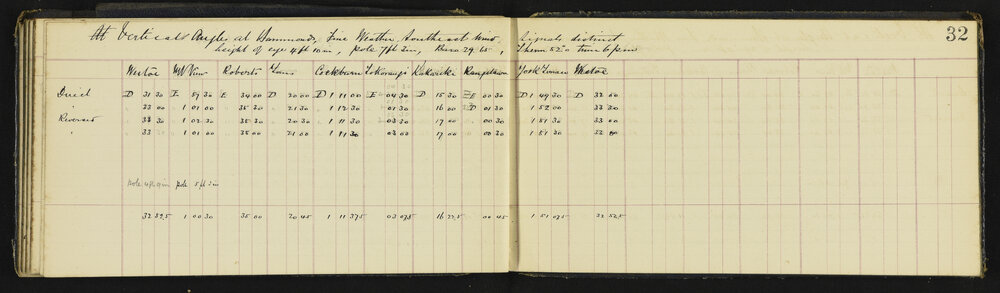 At Vertical Angles at Hammonds, Fine Weather, Southeast wind, Signals distinct 32
height of eye 4 ft 10 in, pole 7 ft 3 in, Baro 29.65, Therm 52° time 6 pm
Westoe Mt View Roberts Cockburn Kakariki York Farm Westoe
Direct D 31 30 E 59 30 E 34 00 D 20 00 D 1 11 00 E 04 30 D 15 30 E 00 30 D 1 49 30 D 32 00
" 33 00 1 01 00 35 30 21 30 1 12 30 01 30 16 00 D 01 30 1 52 00 33 00
Reversed 33 30 1 02 30 35 30 20 30 1 11 30 03 30 17 00 00 30 1 51 30 33 00
" 33 00 1 01 00 35 00 21 00 1 11 30 03 00 17 00 00 30 1 51 30 32 00
pole 4 ft 9 in pole 5 ft 3 in
32 52.5 1 00 30 35 00 20 45 1 11 37.5 03 07.5 16 22.5 00 45 1 51 07.5 32 52.5